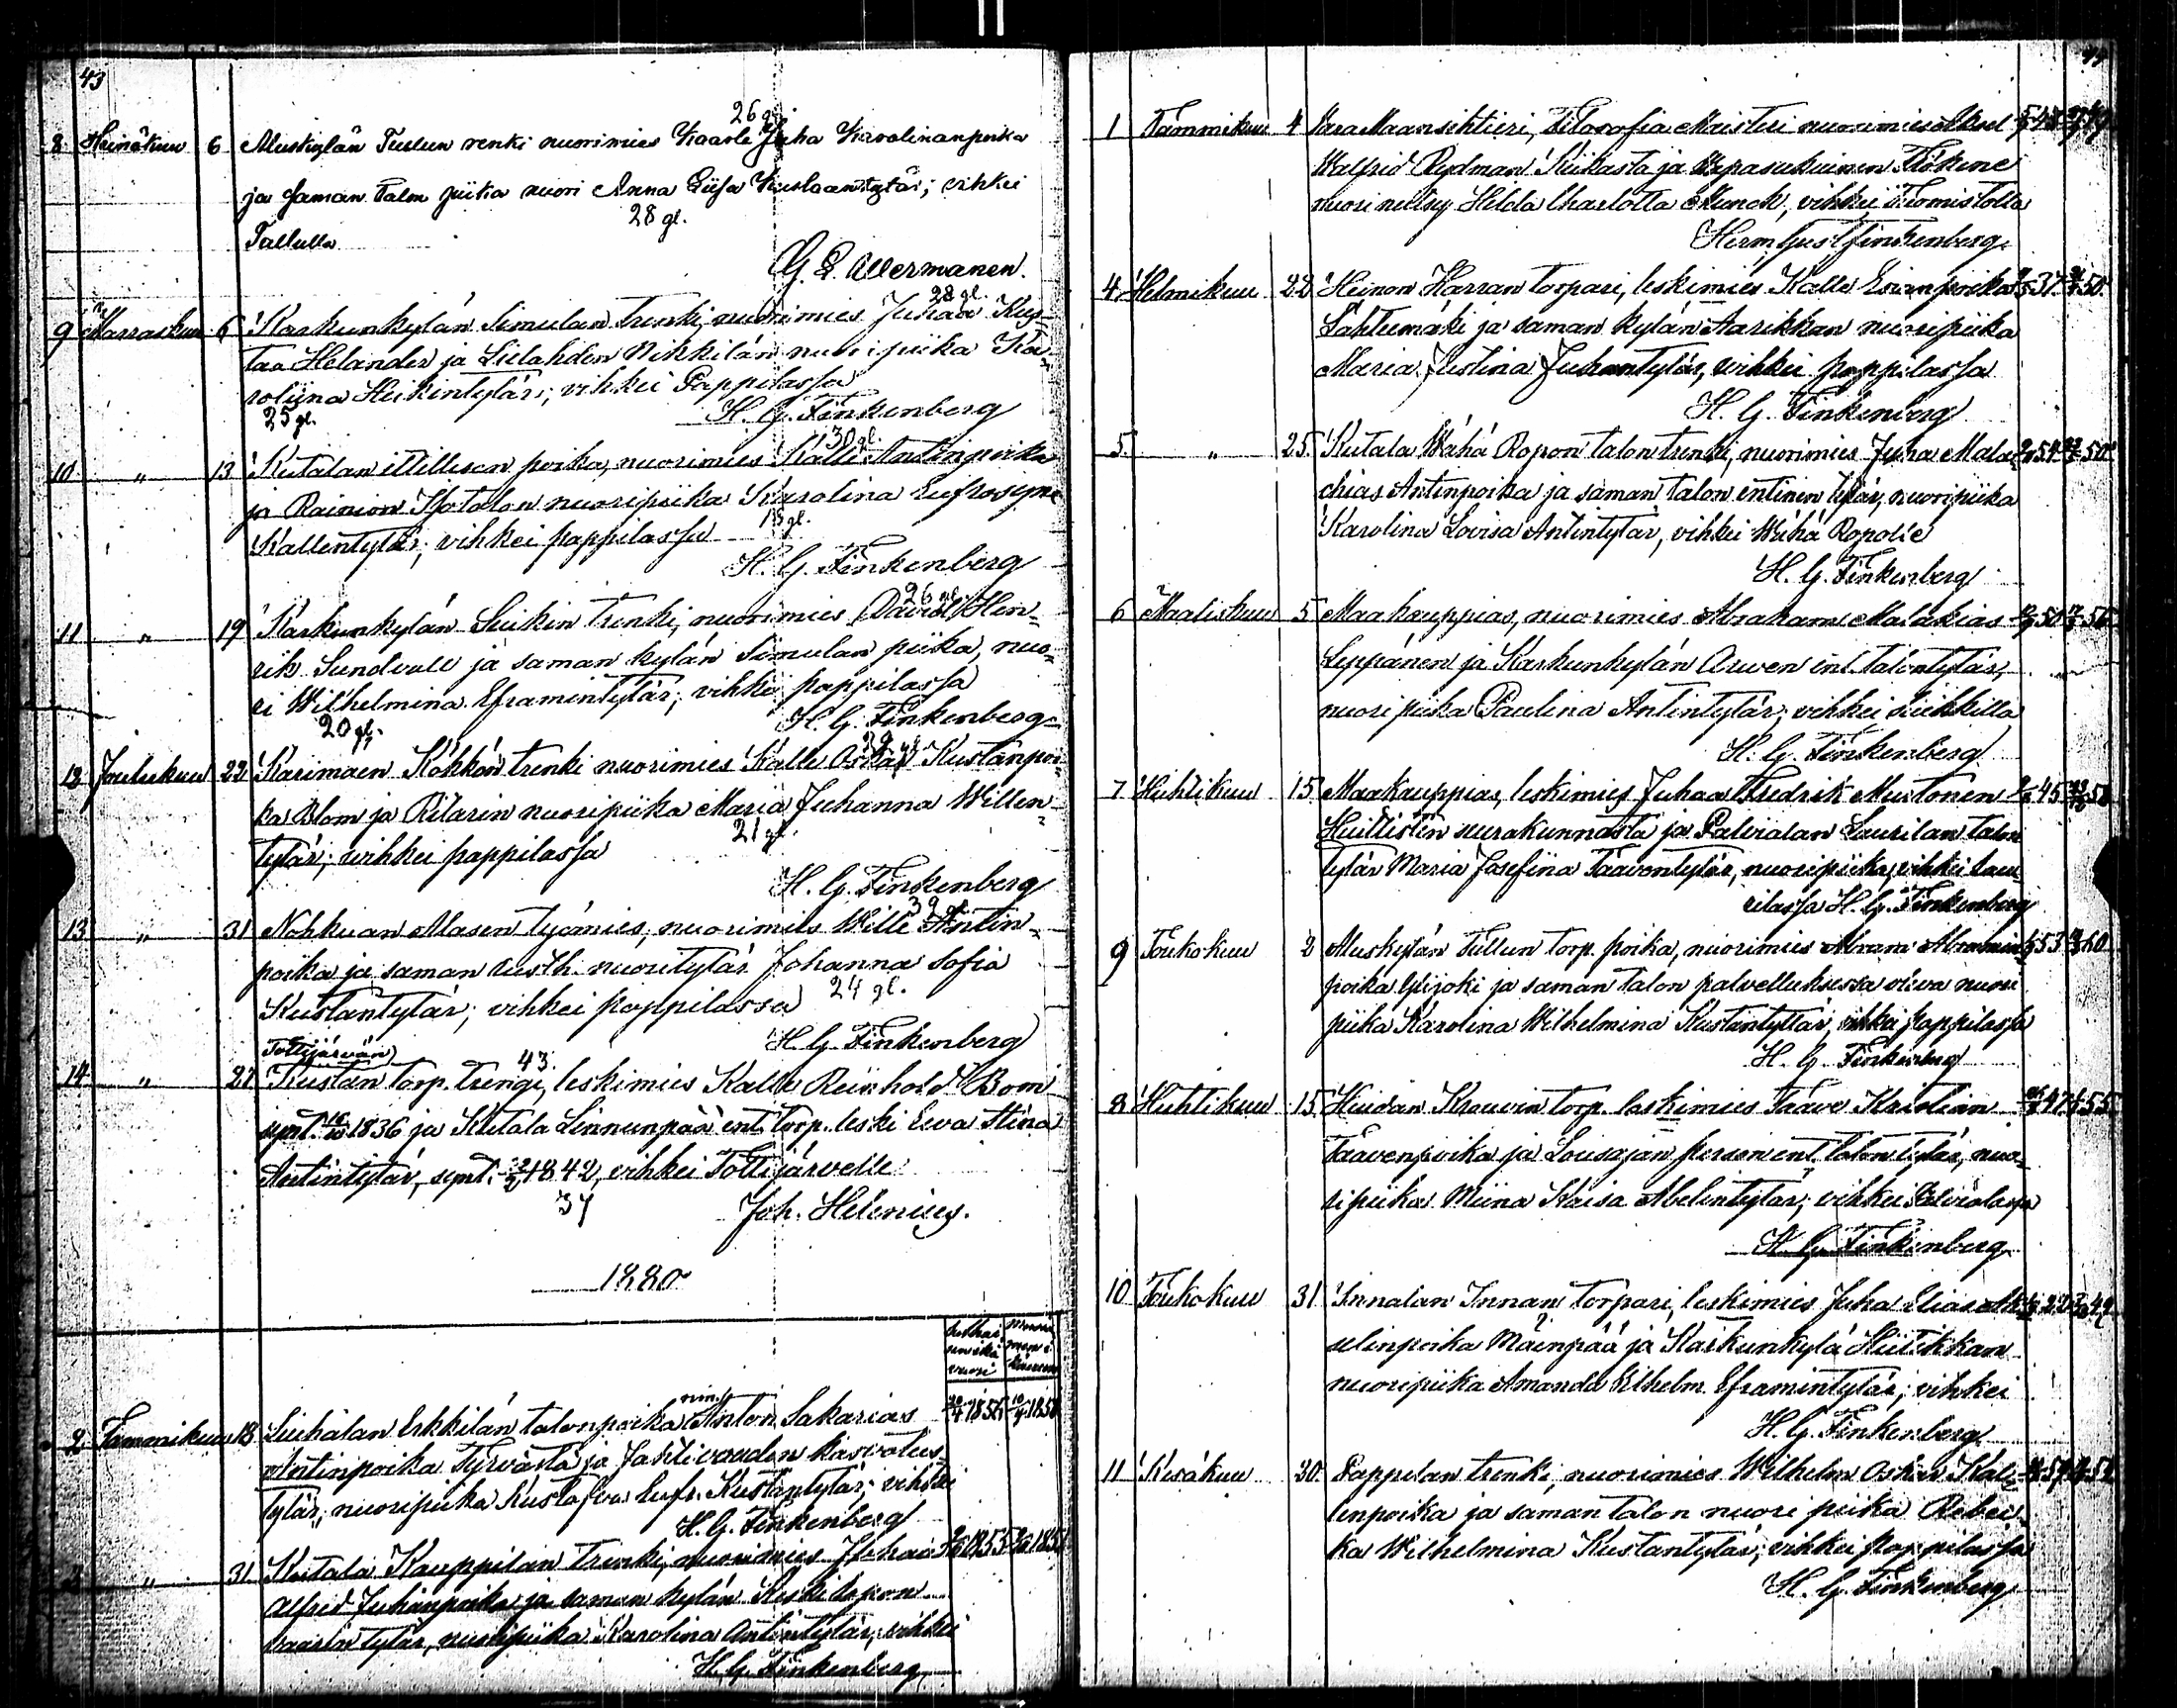 43
26 gl.
8 Heinäkuu 6 Muskylän Tullun renki nuorimies Kaarle Juha Karolinanpoika
ja saman talon piika nuori Anna Liisa Kustaantytär; vihkei
28 gl.
Tullulla
G. E. Allermanen.
28 gl.
9 Marraskuu 6 Karkunkylän Simulan trenki, nuorimies Juhaa Kus-
taa Helander ja Liilahden Nikkilän nuoripiika Ka-
roliina Heikintytär; vihkei Pappilassa
25 gl.
H. G. Finkenberg
30 gl.
10 " 13 Kutalan Millisen poika, nuorimies Kalle Antinpoika
ja Rainion Isotalon nuoripiika Karolina Eufrosyne
18 gl.
Kallentytär; vihkei pappilassa
H. G. Finkenberg
26 gl.
11 " 19 Karkunkylän Liukin trenki, nuorimies David Hen-
rik Sundvall ja saman kylän Simulan piika, nuo-
ri Wilhelmina Eframintytär; vihkei pappilassa
20 gl.
H. G. Finkenberg
12 Joulukuu 22 Karimaen Köhkön trenki nuorimies Kalle Oskar Kustanpoi-
ka Blom ja Ritarin nuoripiika Maria Juhanna Willen-
21 gl.
tytär; vihkei pappilassa
H. G. Finkenberg
39 gl.
13 " 31 Nohkuan Masen työmies, nuorimies Wille Antin-
poika ja saman rusth. nuoritytär Johanna Sofia
24 gl.
Kustantytär; vihkei pappilassa
H. G. Finkenberg
Tottijärvän
43.
14 " 27 Kustan torp. trengi, leskimies Kalle Reinhold Bom
synt. 1836 ja Kutala Linnunpää ent. torp. leski Eeva Stina
Antintytär, synt. 1842, vihkei Tottijärvelle
37
Joh. Helenius.
1880
2 Tammikuu 18 Liuhalan Erkkilän talonpoika nim. Anton Sakarias 1856 1858
Antinpoika Tyrvästä ja Jahtivoudin kasvatus
tytär, nuoripiika Kustafva Eufr. Kustantytär; vihkei
H. G. Finkenberg
3 " 31 Kutala Kauppilan trenki, nuorimies Juhaa 1855
Alfred Juhanpoika ja saman kylän Keski Ropon
vaarin tytär, nuoripiika Karolina Antintytär; vihkei
H. G. Finkenberg
1 Tammikuu 4 Vara Maansihtieri, Filosofia Maisteri nuorimies Aksel
Walfrid Rydman Kiikasta ja Vapasukuinen Frökinä
nuori neitsy Hilda Charlotta Munck, vihkei Tuomistolla
Herm. Gust. Finkenberg.
4 Helmikuu 22 Heinon Harran torpari, leskimies Kalle Erianpoika 37 50
Lahtumäki ja saman kylän Aarikkan nuoripiika
Maria Justina Juhantytär, vihkei pappilassa
H. G. Finkenberg
5 " 25 Kutala Wähä Ropon talon trenki, nuorimies Juha Mala- 54 50
chias Antinpoika ja saman talon entinen tytär, nuoripiika
Karolina Lovisa Antintytär, vihkei Wähä Ropolle
H. G. Finkenberg
6 Maaliskuu 5 Maakauppias, nuorimies Abraham Malakias 50 56
Leppänen ja Karkunkylän Arwen ent. talontytär,
nuoripiika Paulina Antintytär; vihkei
H. G. Finkenberg
7 Huhtikuu 15 Maakauppias, leskimies Juhaa Fredrik Mustonen 45 58
Huittisten seurakunnasta ja Palvialan Laurilan talon
tytär Maria Josefiina Taavontytär, nuoripiika, vihkei Lau-
rilassa H. G. Finkenberg
9 Toukokuu 2 Muskylän Tullun torp. poika, nuorimies Abram Abramin- 53 60
poika Ylijoki ja saman talon palvelluksessa oleva nuori
piika Karolina Wilhelmina Kustantyttär, vihkei pappilassa
H. G. Finkenberg
8 Huhtikuu 15 Hiuoan Krouvin torp. leskimies Taave Kristian 47 55
Taavenpoika ja Lousajan Person ent. talon tytär, nuo-
ripiika Miina Kaisa Abelintytär; vihkei Palvialassa
H. G. Finkenberg
10 Toukokuu 31 Innalan Innan torpari, leskimies Juha Elias Ak-
selinpoika Mäenpää ja Karkunkylä Hiitikkan
nuoripiika Amanda Wilhelm. Eframintytär; vihkei
H. G. Finkenberg
11 Kesäkuu 20 Pappilan trenki, nuorimies Wilhelm Oskar Kal-
lenpoika ja saman talon nuori piika Rebei-
ka Wilhelmina Kustantytär; vihkei pappilassa
H. G. Finkenberg